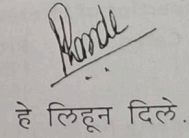 हे लिहून दिले.